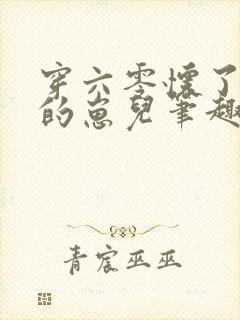 穿六零懷了
的崽兒筆趣
青宸巫巫